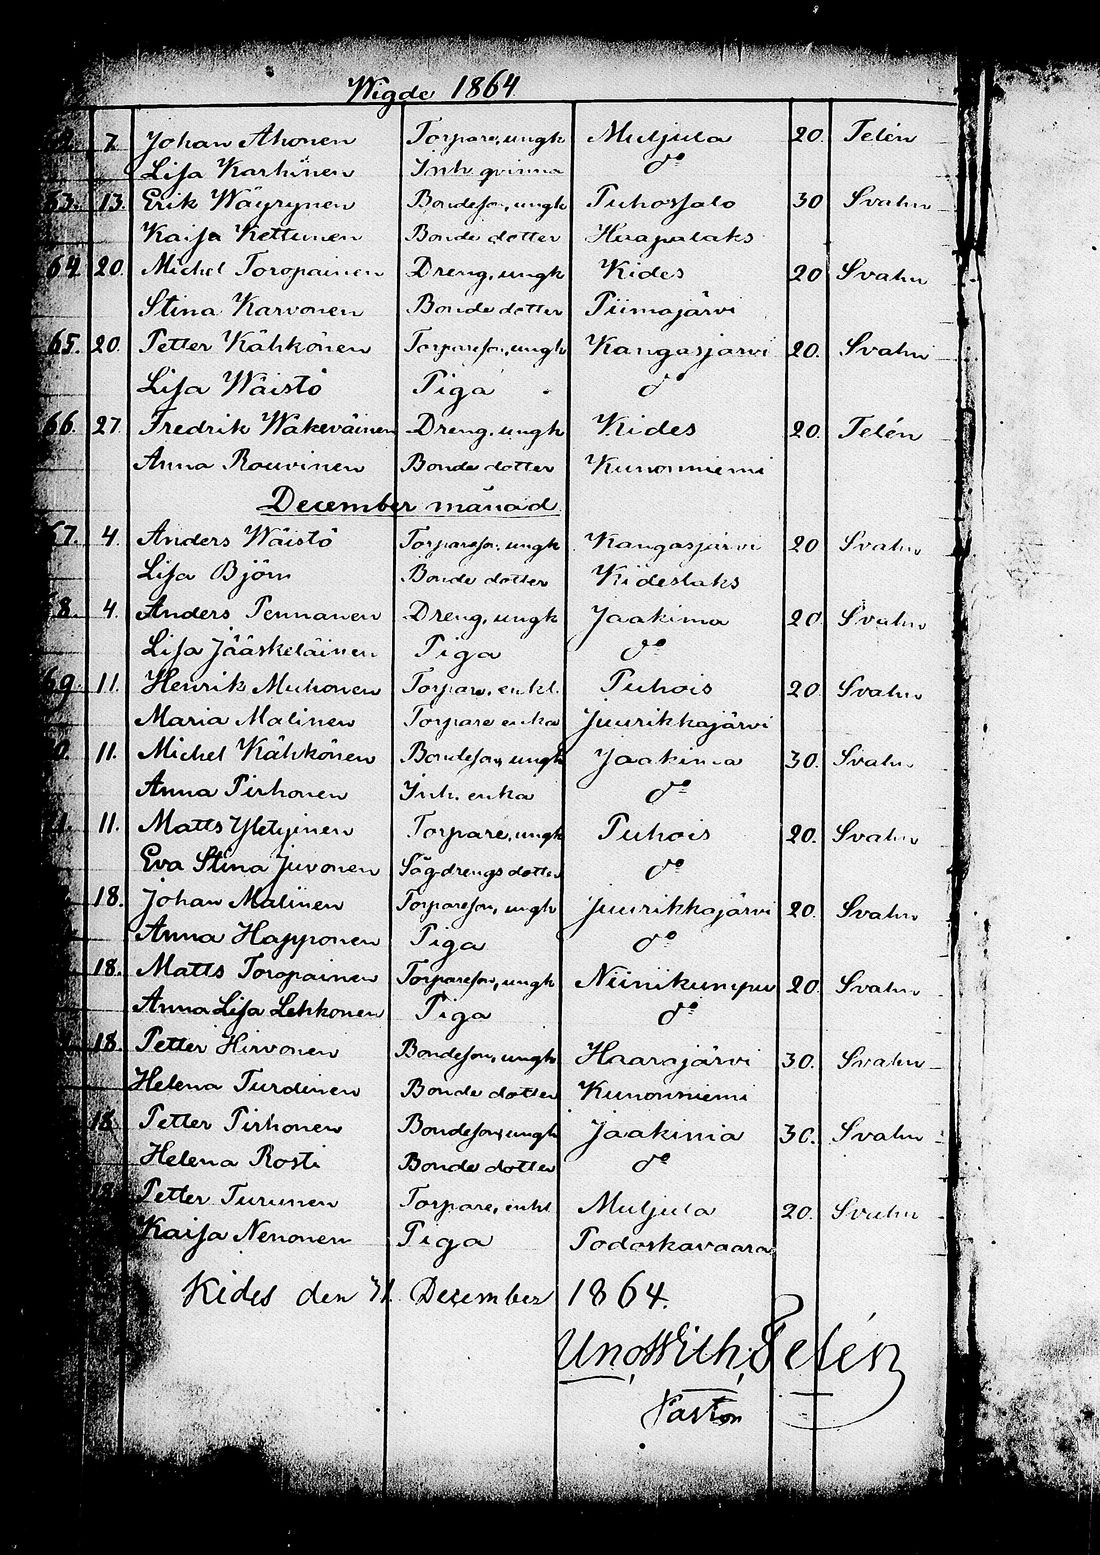 Wigde 1864
7 Johan Ahonen Torpare, ungk Muljula 20. Telén
Lisa Karhinen Inh. qvinna do
63. 13. Erik Wäyrynen Bondeson, ungk Puhossalo 30 Svahn
Kaisa Kettunen Bonde dotter Haapalaks
64. 20. Michel Toropainen Dreng, ungk Kides 20 Svahn
Stina Karvonen Bonde dotter Piimajärvi
65. 20. Petter Kähkönen Torpareson, ungk Kangasjärvi 20. Svahn
Lisa Wäistö Piga do
66. 27. Fredrik Wäkeväinen Dreng, ungk Kides 20. Telén
Anna Rouvinen Bonde dotter Kunonniemi
December månad
67. 4. Anders Wäistö Torpareson, ungk Kangasjärvi 20 Svahn
Lisa Björn Bonde dotter Kideslaks
68. 4. Anders Pennanen Dreng, ungk Jaakima 20 Svahn
Lisa Jääskeläinen Piga do
69. 11. Henrik Muhonen Torpare, enkl. Puhois 20. Svahn
Maria Malinen Torpare enka Juurikkajärvi
11. Michel Kähkönen Bondeson, ungk Jaakima 30. Svahn
Anna Pirhonen Inh. enka do
11. Matts Yletyinen Torpare, ungk Puhois 20. Svahn
Eva Stina Juvonen Sågdrengs dotter do
18. Johan Malinen Torpareson, ungk Juurikkajärvi 20. Svahn
Anna Happonen Piga do
18. Matts Toropainen Torpareson, ungk Niinikumpu 20. Svahn
Anna Lisa Lehkonen Piga do
18. Petter Hirvonen Bondeson, ungk Haarajärvi 30. Svahn
Helena Turdinen Bonde dotter Kunonniemi
18. Petter Pirhonen Bondeson, ungk Jaakima 30. Svahn
Helena Rosti Bonde dotter do
18. Petter Turunen Torpare, enkl Muljula 20. Svahn
Kaisa Nenonen Piga Podoskavaara
Kides den 31. December 1864.
Uno Wilh. Telén
Pastor